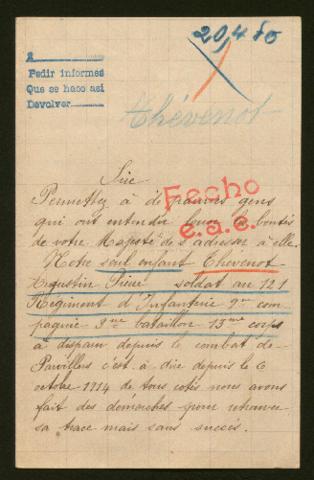 A
Pedir informes
Que se haco asi
Devolver
20,480
Thévenot
Fecho
e.a.e.
Sire
Permettez à de pauvres gens
qui ont entendu louer la bontés
de votre Majesté de s'adresser à elle.
Notre seul enfant Thevenot
Augustin Pierre soldat au 121
Regiment d'Infanterie 9me com
pagnie 3me bataillon 13me corps
à disparu depuis le combat de
Parvillers c'est à dire depuis le 6
octobre 1914 de tous cotés nous avons
fait des démarches pour retrouver
sa trace mais sans succès.